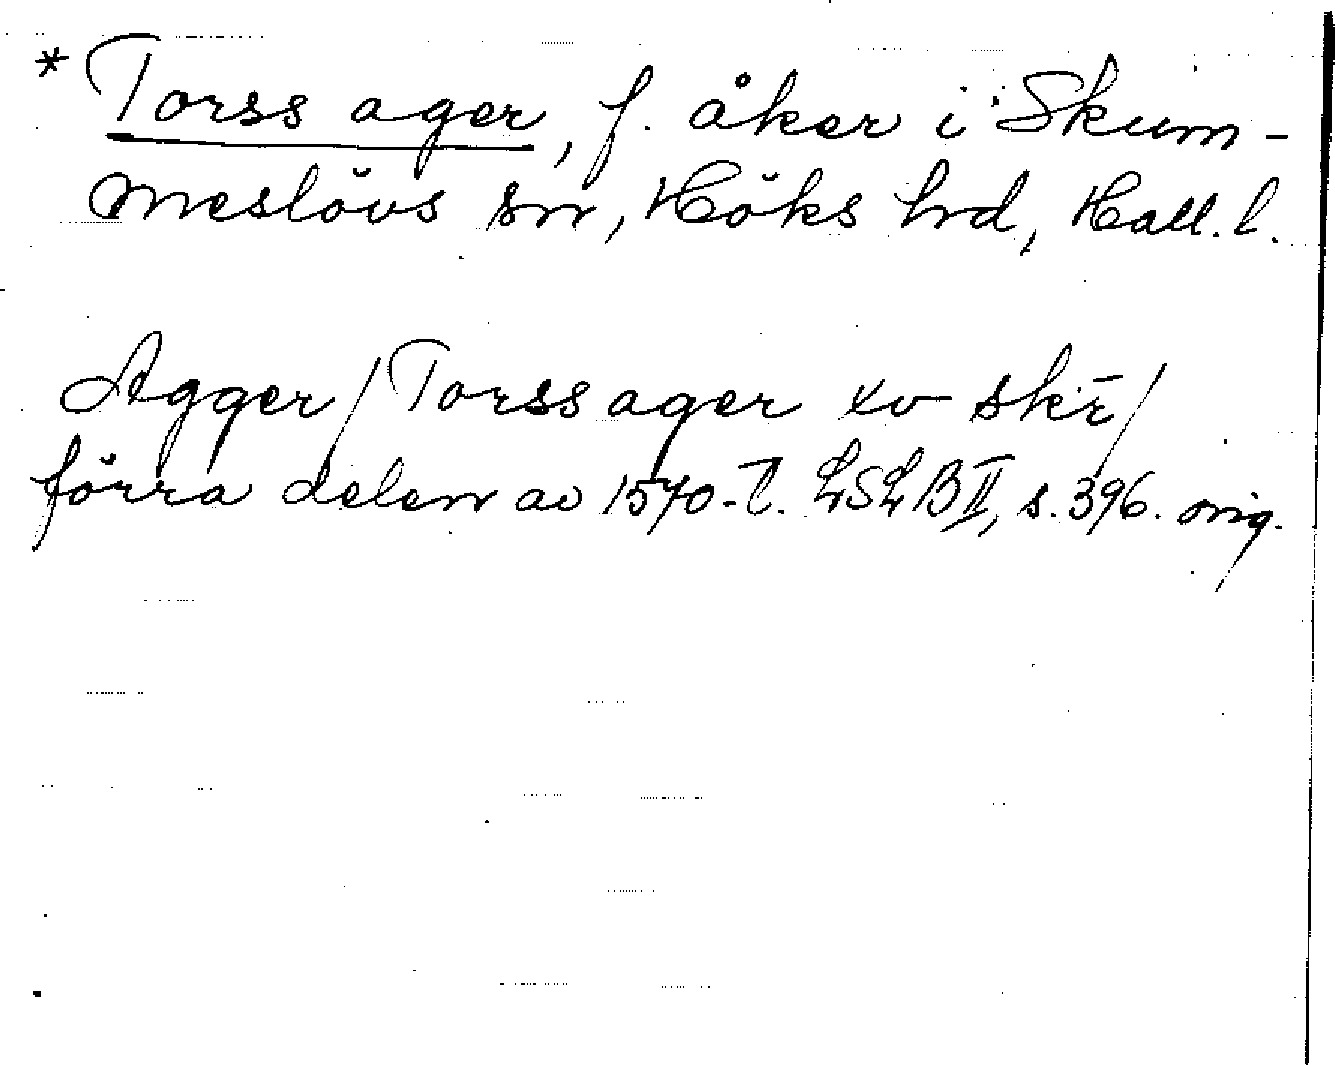 * Torss ager, f. åker i Skum-
meslövs sn, Höks hrd, Hall. l.
Agger / Torss ager xv skr̄ /
förra delen av 1570-t. LSLB II, s. 396. orig.